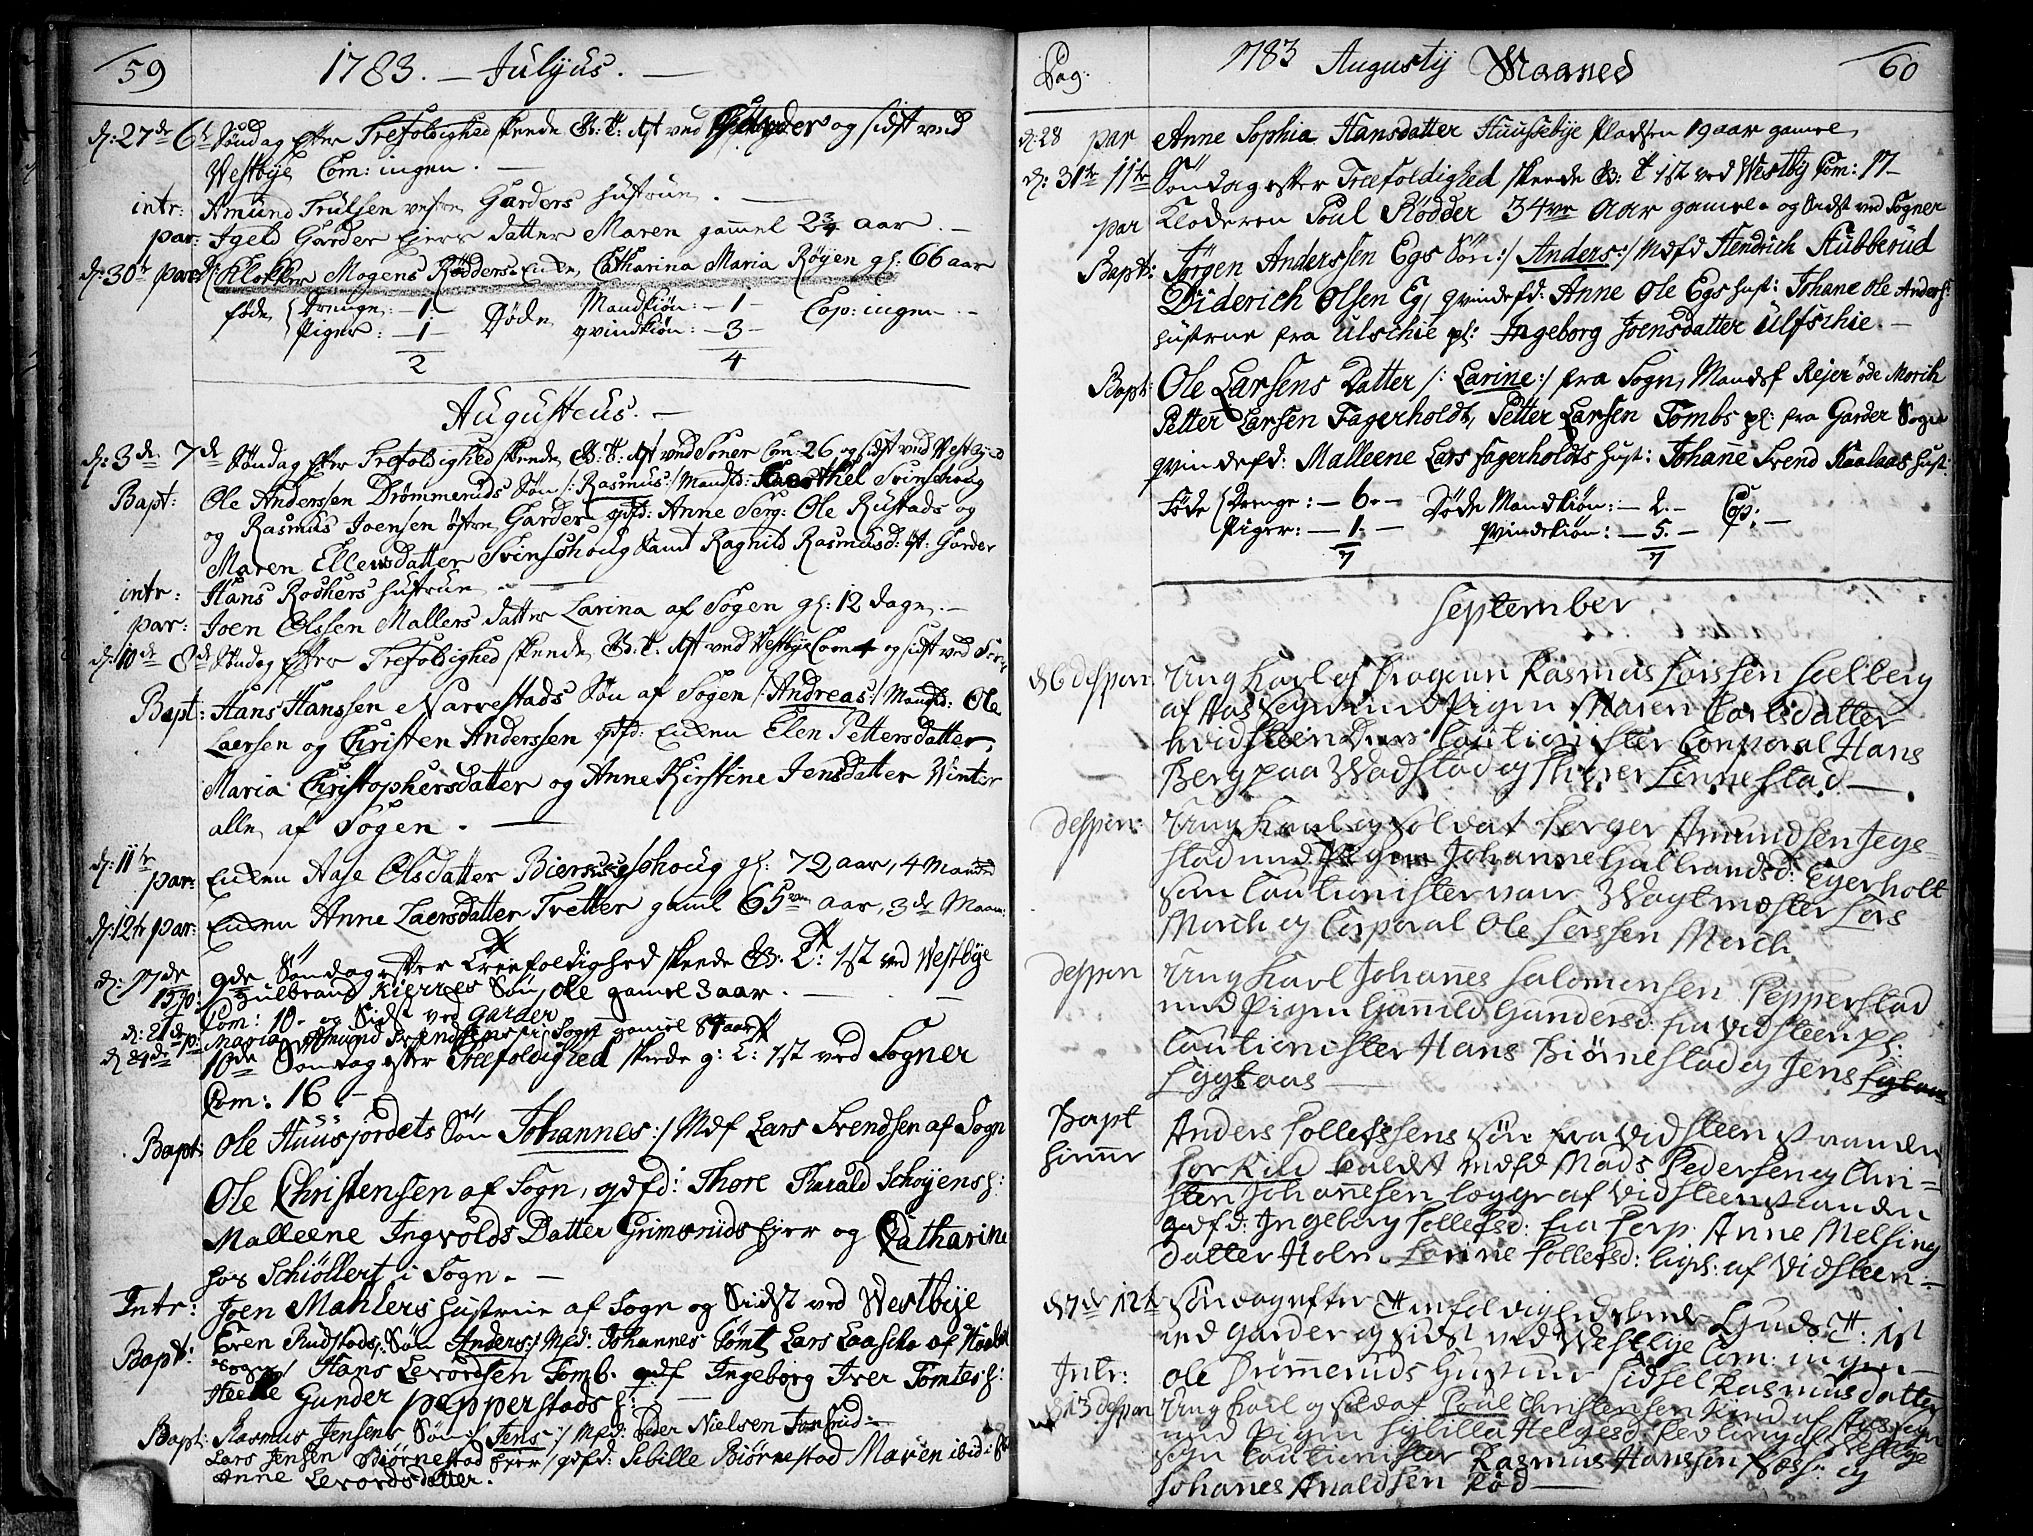 59
1783. – Julyus. –
d: 27de 6te Søndag efter Trefoldighed skeede G: T: 1st ved Garder og sidst ved
Westbye Com: ingen. –
intr: Amund Trulsen vestre Garders hustrue. –
par: Jgeld Garder Eiers datter Maren gamel 2¾ aar. –
d: 30te par: Klokker Mogens Rødders Enke Catharina Maria Røyen gl: 66 aar
føde Drenge – 1 – Døde Mandkiøn: – 1 – Cop: ingen –
Piger: – 1 – qvindkiøn: – 3 –
2 4
Augusteus. –
d: 3de 7de Søndag efter Trefoldighed skeede G: T: 1st ved Soner Com: 26 og sidst ved Westby
Bapt: Ole Anderssen Drømmeruds Søn /: Rasmus :/ Mandfd: Svinshoug
og Rasmus Joensen østen Garder qdfd: Anne Serg: Ole Rustads og
Maren Ellensdatter Svinshoug Samt Ragnild Rasmusd: øst: Garder
intr: Hans Rodkers hustrue –
par: Joen Olssen Mallers datter Larina af Sogen gl: 12 dage. –
d: 10de 8de Søndag efter Trefoldighed skeede G: T: 1st ved Westbye Com 4 og sidst ved
Bapt: Hans Hanssen Narvestads Søn af Sogen /: Andreas :/ Mandfd: Ole
Laersen og Christen Anderssen qdfd: Enken Elen Pettersdatter,
Maria Christophersdatter og Anne Kirstine Jensdatter Winter
alle af Sogen. –
d: 11te par: Enken Aase Olsdatter gl: 72 aar, 4 Maaned
d: 12te par: Enken Anne Laersdatter Tretter gaml 65 aar, 3de Maan:
d: 17de 9de Søndag efter Treefoldighed skeede G: T: 1st ved Westbye
Gulbrand Kierres Søn, Ole gamel 3 aar. –
Com: 10 – og Sidst ved Garder
d: 21de p: Maria Amund i Sogn gamel
d 24de 10de Søndag efter Treefoldighed skeede g: T: 1st ved Sogner
Com: 16 –
Bapt: Ole Huusjordets Søn Johannes :/ Mdf Lars Svendsen af Sogn
Ole Christensen af Sogn, qdfd: Thore Harald Schøyens h:
Malleene Ingvolds Datter Grimsruds Eyer og Catharine
hos Schiøllert i Sogn. –
Intr: Joen Mahlers hustrue af Sogn og Sidst ved Westbye
Bapt: Even Rudstads Søn Anders :/ Mfd: Johannes Tømt Lars Laascho af
Sogn / Hans Levordsen Tomb. qdf Ingeborg Iver Tomtes h:
Gunder Pepperstads h: –
Bapt: Rasmus Jensens Søn /: Jens :/ Mfd: Peder Nielsen
Lars Jensen Biørnestad Eyer / qdfd: Sibille Biørnestad Maren ibid:
Anne Levordsdatter.
Pag: 1783 Augustij Maaned 60
d: 28 par Anne Sophia Hansdatter Huusebye Pladsen 19 aar gamel
d: 31te 11te Søndag efter Treefoldighed skeede G: T 1st ved Westby Com: 17 –
par Kloderen Poul Rødder 34 aar gamel og Sidst ved Sogner
Bapt: Jørgen Anderssen Egs Søn :/ Anders :/ Mdfd Hendrich Stubberud
Diderich Olsen Eg, qvindefd: Anne Ole Egs hust: Johane Ole Anders:
hustrue fra Ulschie pl: Ingeborg Joensdatter Ulfschie. –
Bapt: Ole Larsens Datter /: Larine :/ fra Sogn, Mandsf Rejer øde Morch
Petter Larsen Fagerholdt, Petter Larsen Tombs pl: fra Garder Sogn
qvindefd: Malleene Lars Fagerholdts hust: Johane Svend Kaalaas hust:
Føde Drenge: – 6. – Døde Mandkiøn: – 2. – Cop: –
Piger: – 1. – Qvindekiøn: – 5. –
7 7
September
d 6 Despon: Ung Karl og Dragoun Rasmus Larssen Selberg
af Aas Sogn med Pigen Maren Carlsdatter
hvidsteen Deres Cautionister Corporal Hans
Berg paa Wadstad og Linnestad –
Despon: Ung Karl og Soldat Børger Amundsen Jege-
stad med Pigen Johanne Gulbrandsd: Egerholt
som Cautionister var Wagtmester Lars
Morch og Corporal Ole Larssen Morch.
Despon Ung Karl Johanes Salomonsen Pepperstad
med Pigen Gunnild Gundersd: fra Vidsteen Pl:
Cautionister Hans Biørnestad og Jens
Lygtaas –
Bapt Anders Tollefssens Søn fra Vidsteen stranden
hiemme Torkild kaldet Mdfd Mads Pedersen og Chri-
sten Johannesen begge af Vidsteenstranden
qdfd: Ingeborg Tollefsd: fra Anne Melhing
datter Holm. Larine Tollefsd: ligs: af Vidsteen –
d 7de 12te Søndag efter Trefoldighed skeede Guds T: 1st
ved Garder og sidst ved Westbye Com: ingen –
Intr: Ole Drømmeruds Hustrue Sidsel Rasmusdatter
d 13 Despon Ung Karl og Soldat Poul Christensen af Aas Sogn
med Pigen Sybilla Helgesd: af Westbye
Sogn Cautionister Rasmus Hanssen og
Johanes Analdsen Rød –